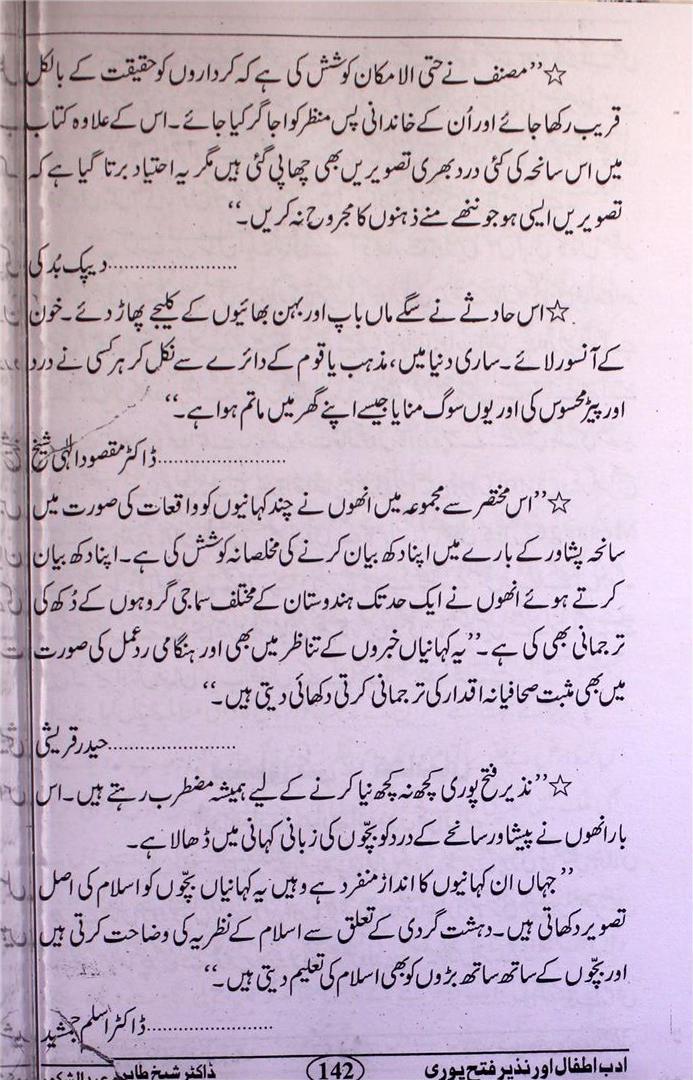 ☆ ’’مصنف نے حتی الامکان کوشش کی ہے کہ کرداروں کو حقیقت کے بالکل
قریب رکھا جائے اور اُن کے خاندانی پس منظر کو اجاگر کیا جائے۔ اس کے علاوہ کتاب
میں اس سانحہ کی کئی درد بھری تصویریں بھی چھاپی گئی ہیں مگر یہ احتیاد برتا گیا ہے کہ
تصویریں ایسی ہو جو ننھے منے ذہنوں کا مجروح نہ کریں۔‘‘
......................دیپک بُدکی
☆ اس حادثے نے سگے ماں باپ اور بہن بھائیوں کے کلیجے پھاڑ دئے۔ خون
کے آنسو رلائے۔ ساری دنیا میں، مذہب یا قوم کے دائرے سے نکل کر ہر کسی نے درد
اور پیڑ محسوس کی اور یوں سوگ منایا جیسے اپنے گھر میں ماتم ہوا ہے۔‘‘
......................ڈاکٹر مقصود الٰہی شیخ
☆ ’’اس مختصر سے مجموعہ میں انھوں نے چند کہانیوں کو واقعات کی صورت میں
سانحہ پشاور کے بارے میں اپنا دکھ بیان کرنے کی مخلصانہ کوشش کی ہے۔ اپنا دکھ بیان
کرتے ہوئے انھوں نے ایک حد تک ہندوستان کے مختلف سماجی گروہوں کے دُکھ کی
ترجمانی بھی کی ہے۔’’یہ کہانیاں خبروں کے تناظر میں بھی اور ہنگامی ردِعمل کی صورت
میں بھی مثبت صحافیانہ اقدار کی ترجمانی کرتی دکھائی دیتی ہیں۔‘‘
......................حیدر قریشی
☆ ’’نذیر فتح پوری کچھ نہ کچھ نیا کرنے کے لیے ہمیشہ مضطرب رہتے ہیں۔ اس
بار انھوں نے پیشاور سانحے کے درد کو بچّوں کی زبانی کہانی میں ڈھالا ہے۔
’’جہاں ان کہانیوں کا انداز منفرد ہے وہیں یہ کہانیاں بچّوں کو اسلام کی اصل
تصویر دکھاتی ہیں۔ دہشت گردی کے تعلق سے اسلام کے نظریہ کی وضاحت کرتی ہیں
اور بچّوں کے ساتھ ساتھ بڑوں کو بھی اسلام کی تعلیم دیتی ہیں۔‘‘
......................ڈاکٹر اسلم جمشید
ادب اطفال اور نذیر فتح پوری 142 ڈاکٹر شیخ طاہر